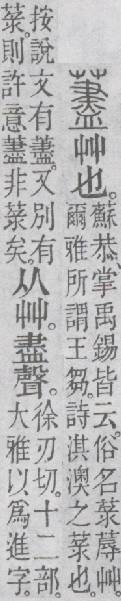 藎艸也。蘇恭、掌禹錫皆云。俗名菉蓐艸。
爾雅所謂王芻。詩淇澳之菉也。
按說文有藎。又別有
菉。則許意藎非菉矣。
从艸。盡聲。徐刃切。十二部。
大雅以爲進字。